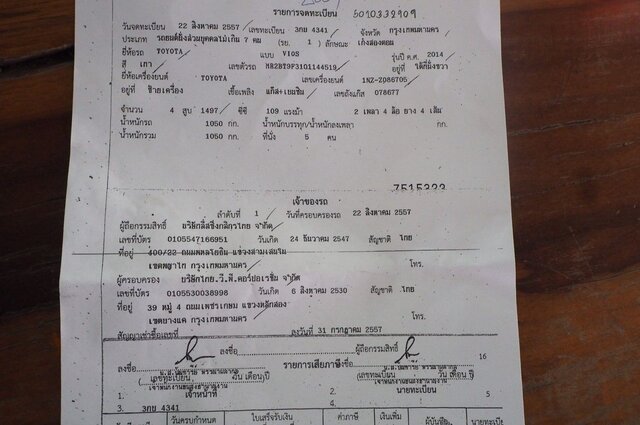 รายการจดทะเบียน
วันจดทะเบียน 22 สิงหาคม 2557 เลขทะเบียน 3กย 4341 จังหวัด กรุงเทพมหานคร
ประเภท รถยนต์นั่งส่วนบุคคลไม่เกิน 7 คน (รย. 1) ลักษณะ เก๋งสองตอน
ยี่ห้อรถ TOYOTA แบบ VIOS รุ่นปี ค.ศ. 2014
สี เทา เลขตัวรถ MR2BT9F3101144519 อยู่ที่
ยี่ห้อเครื่องยนต์ TOYOTA เลขเครื่องยนต์ 1NZ-Z086705
อยู่ที่ ซ้ายเครื่อง เชื้อเพลิง แก๊ส+เบนซิน เลขถังแก๊ส 078677
จำนวน 4 สูบ 1497 ซีซี 109 แรงม้า 2 เพลา 4 ล้อ ยาง 4 เส้น
น้ำหนักรถ 1050 กก. น้ำหนักบรรทุก/น้ำหนักลงเพลา กก.
น้ำหนักรวม 1050 กก. ที่นั่ง 5 คน
7515323
เจ้าของรถ
ลำดับที่ 1 วันที่ครอบครองรถ 22 สิงหาคม 2557
ผู้ถือกรรมสิทธิ์ บริษัทลีสซิ่งกสิกรไทย จำกัด
เลขที่บัตร 0105547166951 วันเกิด 24 ธันวาคม 2547 สัญชาติ ไทย
ที่อยู่ 400/22 ถนนพหลโยธิน แขวงสามเสนใน
เขตพญาไท กรุงเทพมหานคร โทร.
ผู้ครอบครอง บริษัทไทย.วี.พี.คอร์ปอเรชั่น จำกัด
เลขที่บัตร 0105530038998 วันเกิด 6 สิงหาคม 2530 สัญชาติ ไทย
ที่อยู่ 39 หมู่ 4 ถนนเพชรเกษม แขวงหลักสอง
เขตบางแค กรุงเทพมหานคร โทร.
สัญญาเช่าซื้อเลขที่ ลงวันที่ 31 กรกฎาคม 2557
ลงชื่อ ผู้ถือกรรมสิทธิ์
16
ลงชื่อ รายการเสียภาษี ลงชื่อ
1. เจ้าหน้าที่ 2. นายทะเบียน 5
3. 3กย 4341 4.
วันครบกำหนด ใบเสร็จรับเงิน ค่าภาษี เงินเพิ่ม